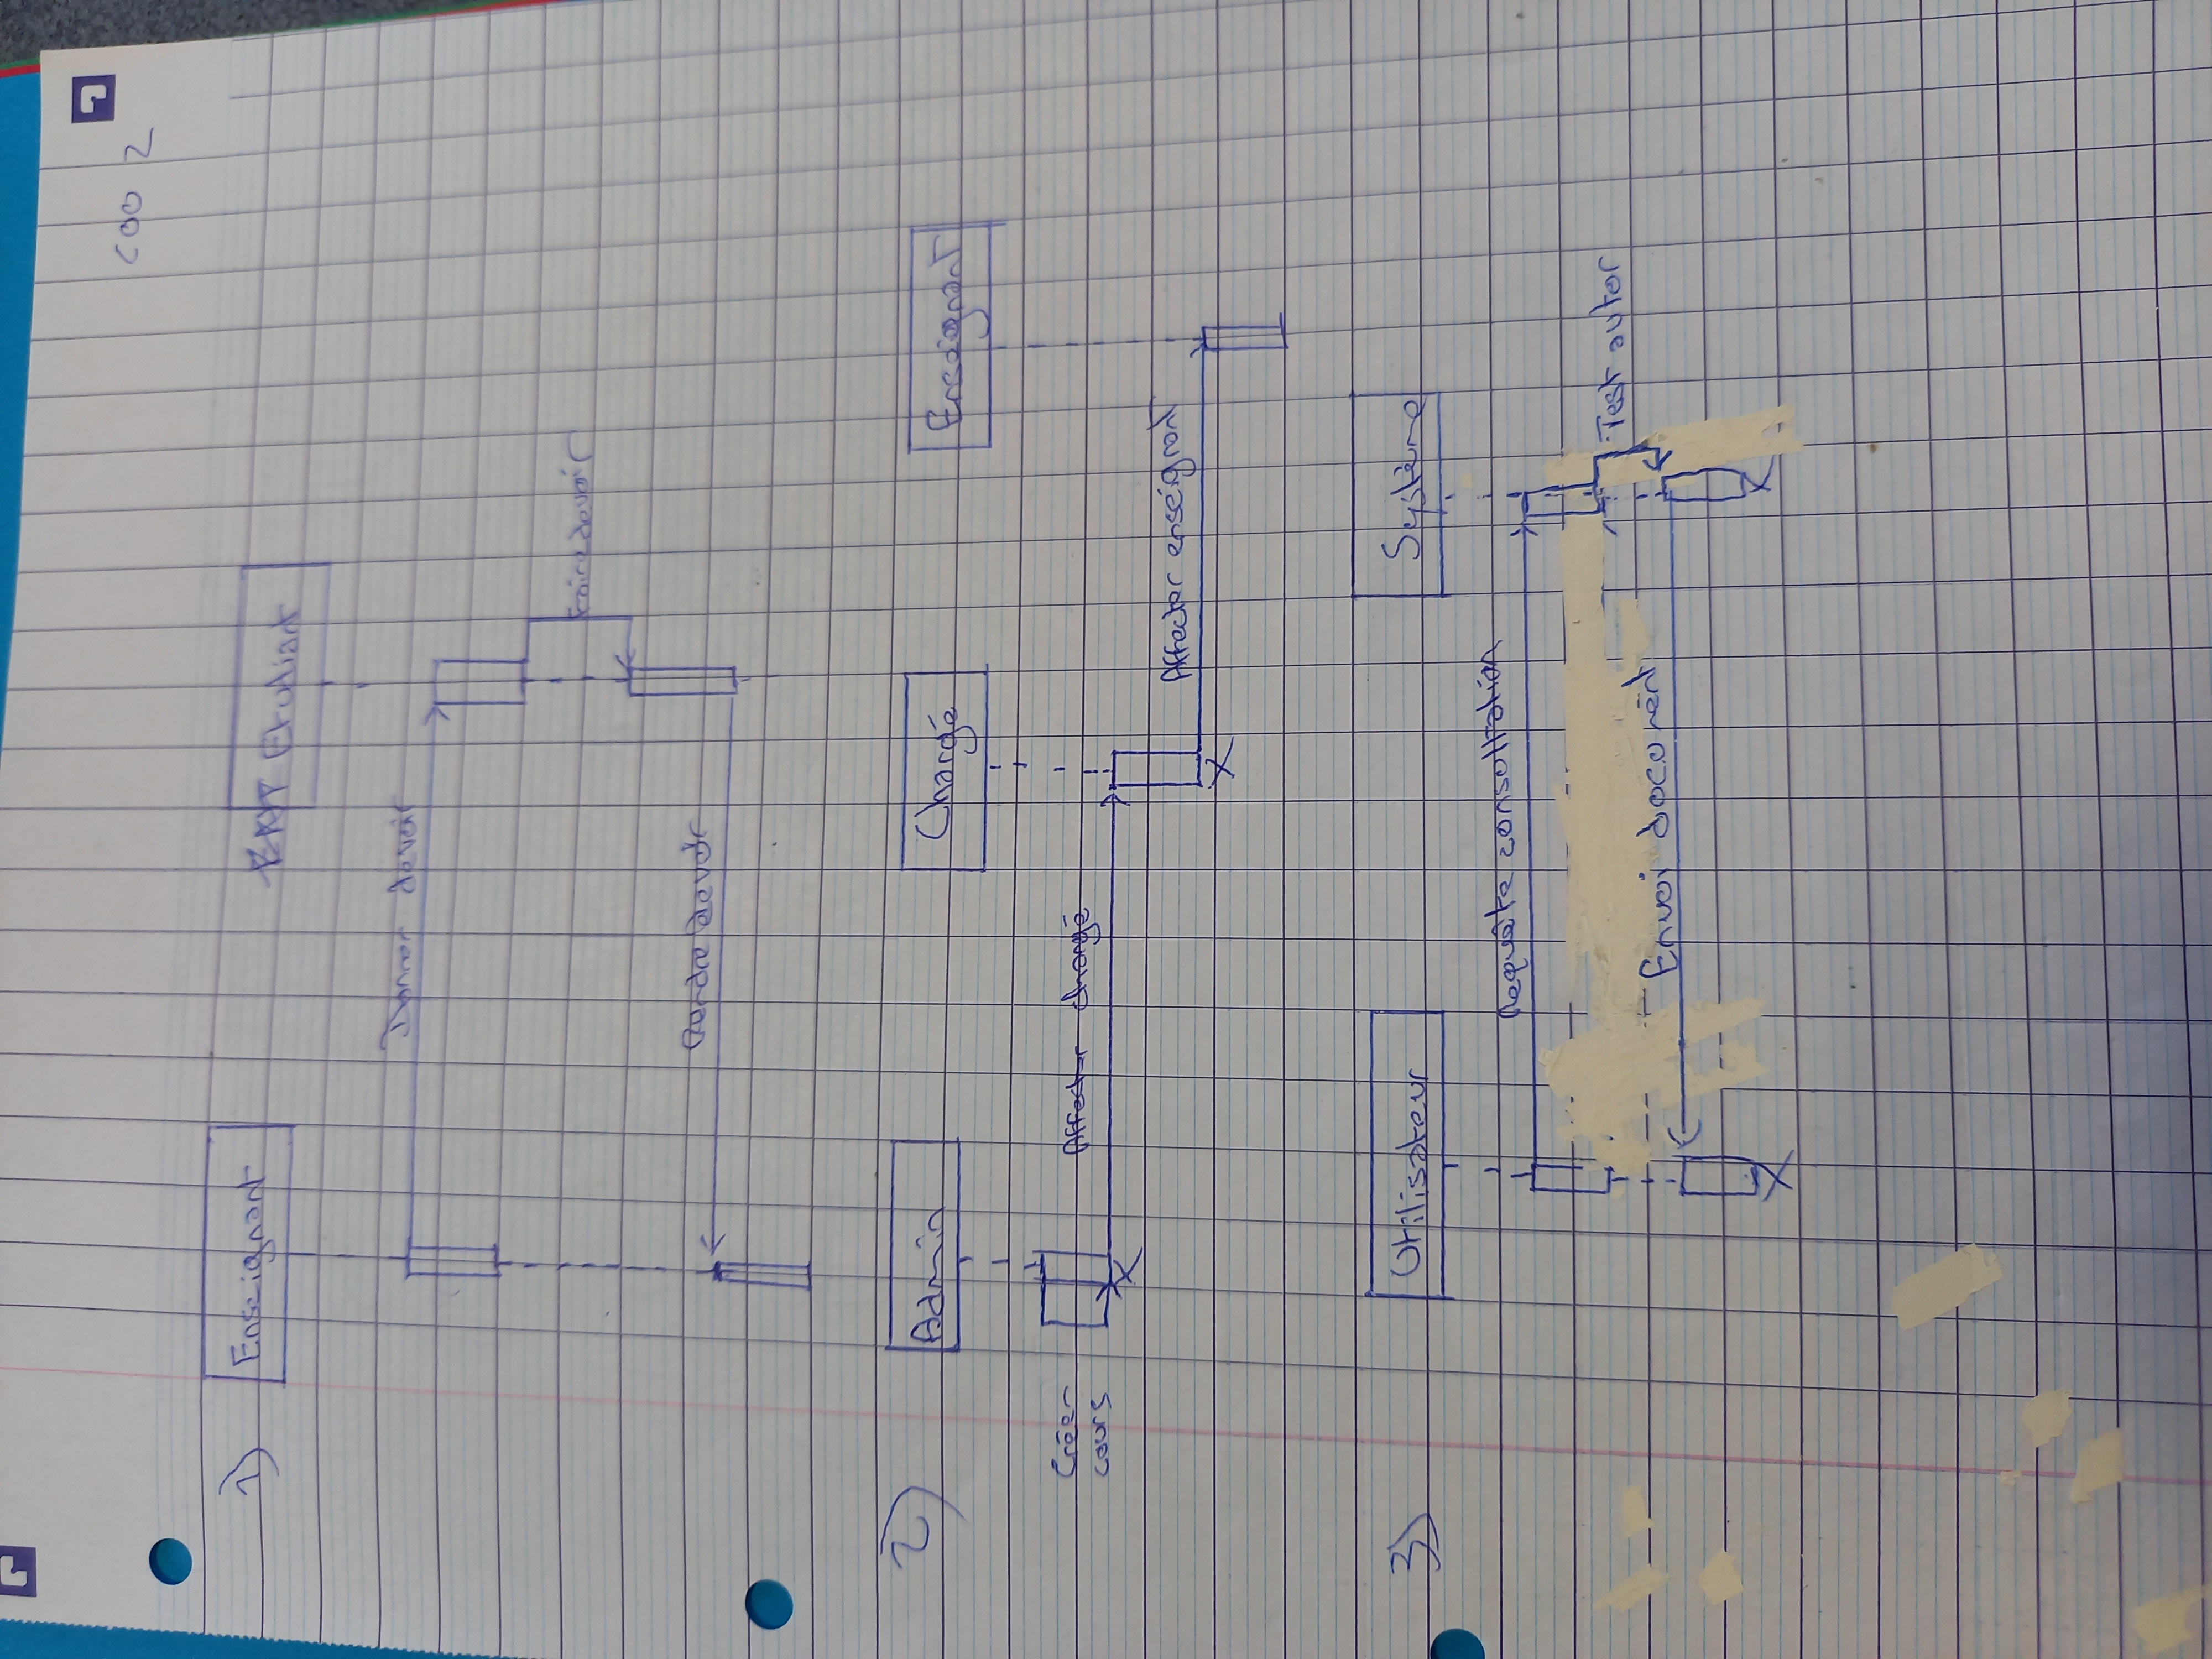 COO 2
1)
Enseignant
Etudiant
Donner devoir
Faire devoir
Rendre devoir
2)
Admin
Chargé
Enseignant
Créer
cours
Affecter chargé
Affecter enseignant
3)
Utilisateur
Système
Requête consultation
Test autor
Envoi document